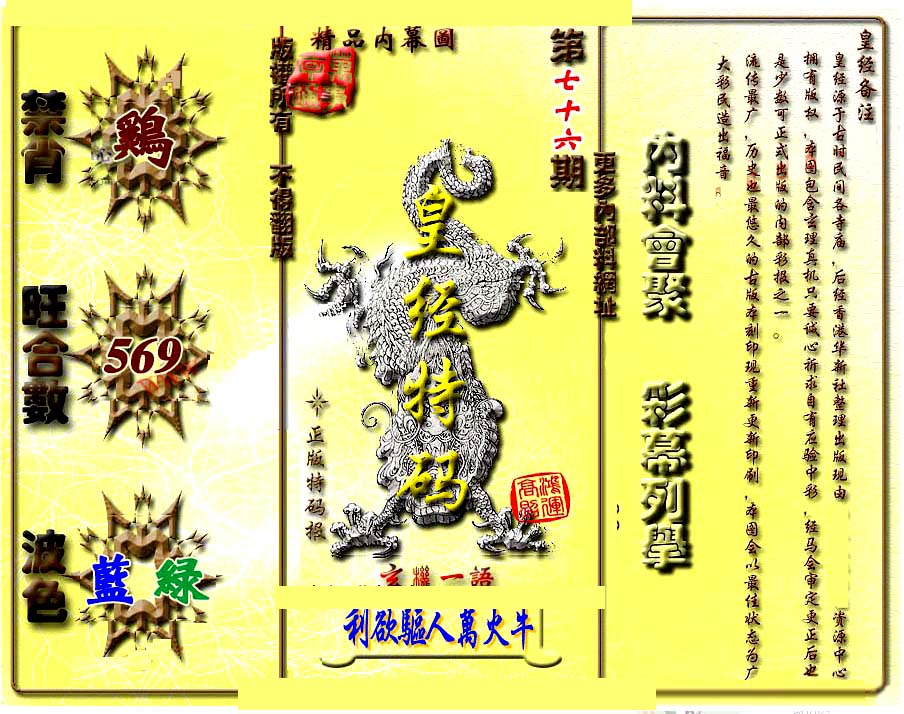 皇经备注
皇经源于古时民间各寺庙,后经香港华新社整理出版现由 资源中心
拥有版权,本图包含玄理真机只要诚心祈求自有应验中彩,经马会审定更正后也
是少数可正式出版的内部彩报之一。
流传最广,历史也最悠久的古版本刻印现重新更新印刷,本图会以最佳状态为广
大彩民造出福音
內料會聚 彩幕列舉
更多內部料網址
第七十六期
精品内幕圖
版權所有 不得翻版
皇经特码
正版特码报
鴻運高照
玄機一語
利欲驅人萬火牛
禁肖
鷄
旺合數
569
波色
藍 緑